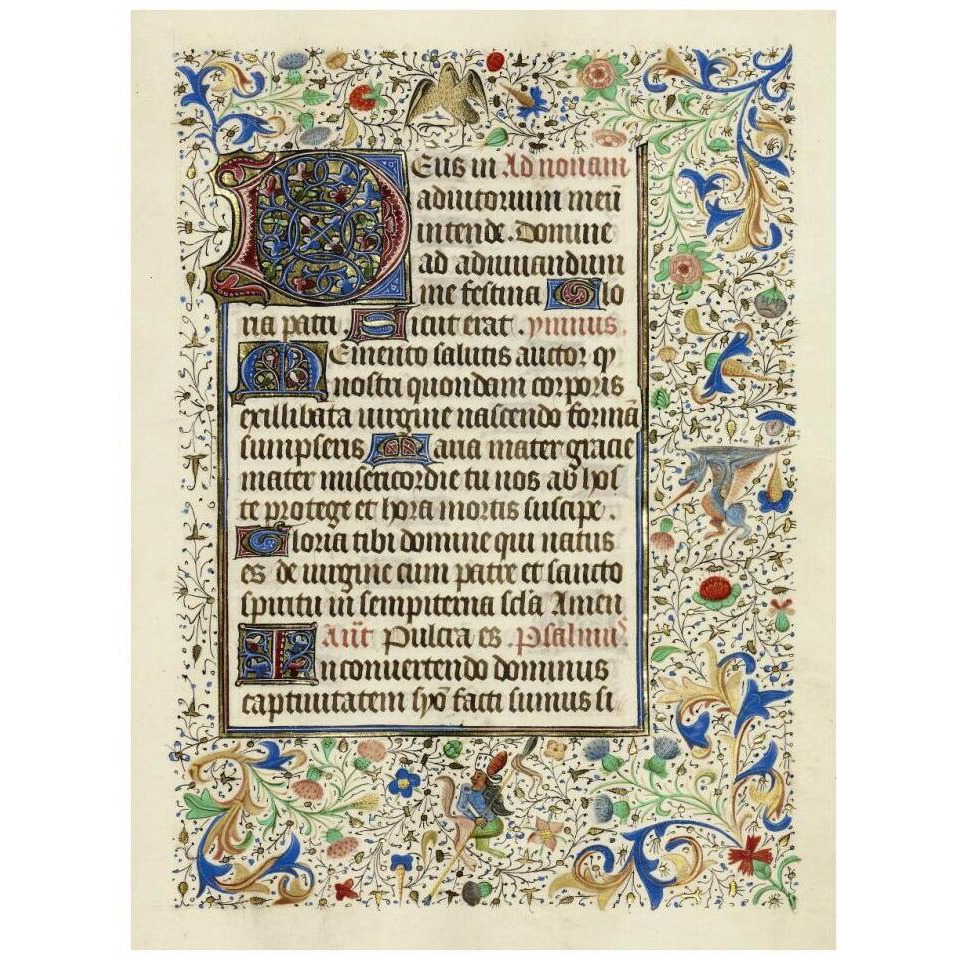 Deus in Ad nonam
adiutorium meū
intende. Domine
ad adiuuandum
me festina Glo
ria patri. Sicut erat .ymnus.
Memento salutis auctor qͥ
nostri quondam corporis
ex illibata uirgine nascendo formā
sumpseris Maria mater gracie
mater misericordie tu nos ab hos
te protege et hora mortis suscipe.
Gloria tibi domine qui natus
es de uirgine cum patre et sancto
spiritu in sempiterna secła Amen
Añt Pulcra es. Psalmus.
In conuertendo dominus
captiuitatem syō facti sumus si